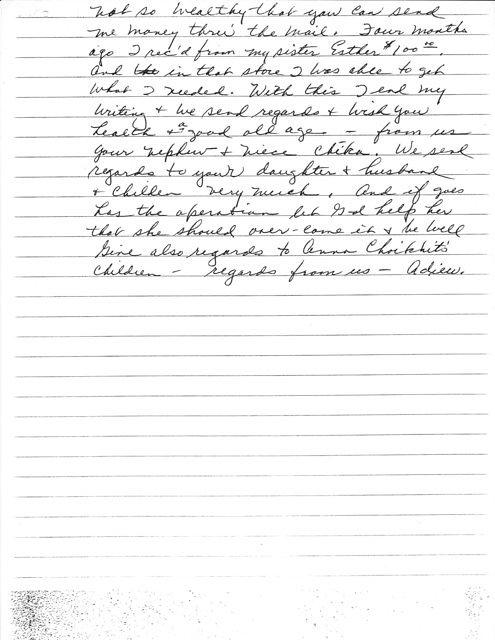 not so wealthy that you can send
me money thru the mail. Four months
ago I rec'd from my sister Esther $100.00.
And the in that store I was able to get
what I needed. With this I end my
writing & we send regards & wish you
health & a good old age — from us
your nephew & niece Chika. We send
regards to your daughter & husband
& chillen very much. And if goes
has the operation let G-d help her
that she should over-come it & be well
Give also regards to Anna Choikhit's
children — regards from us — Adieu.